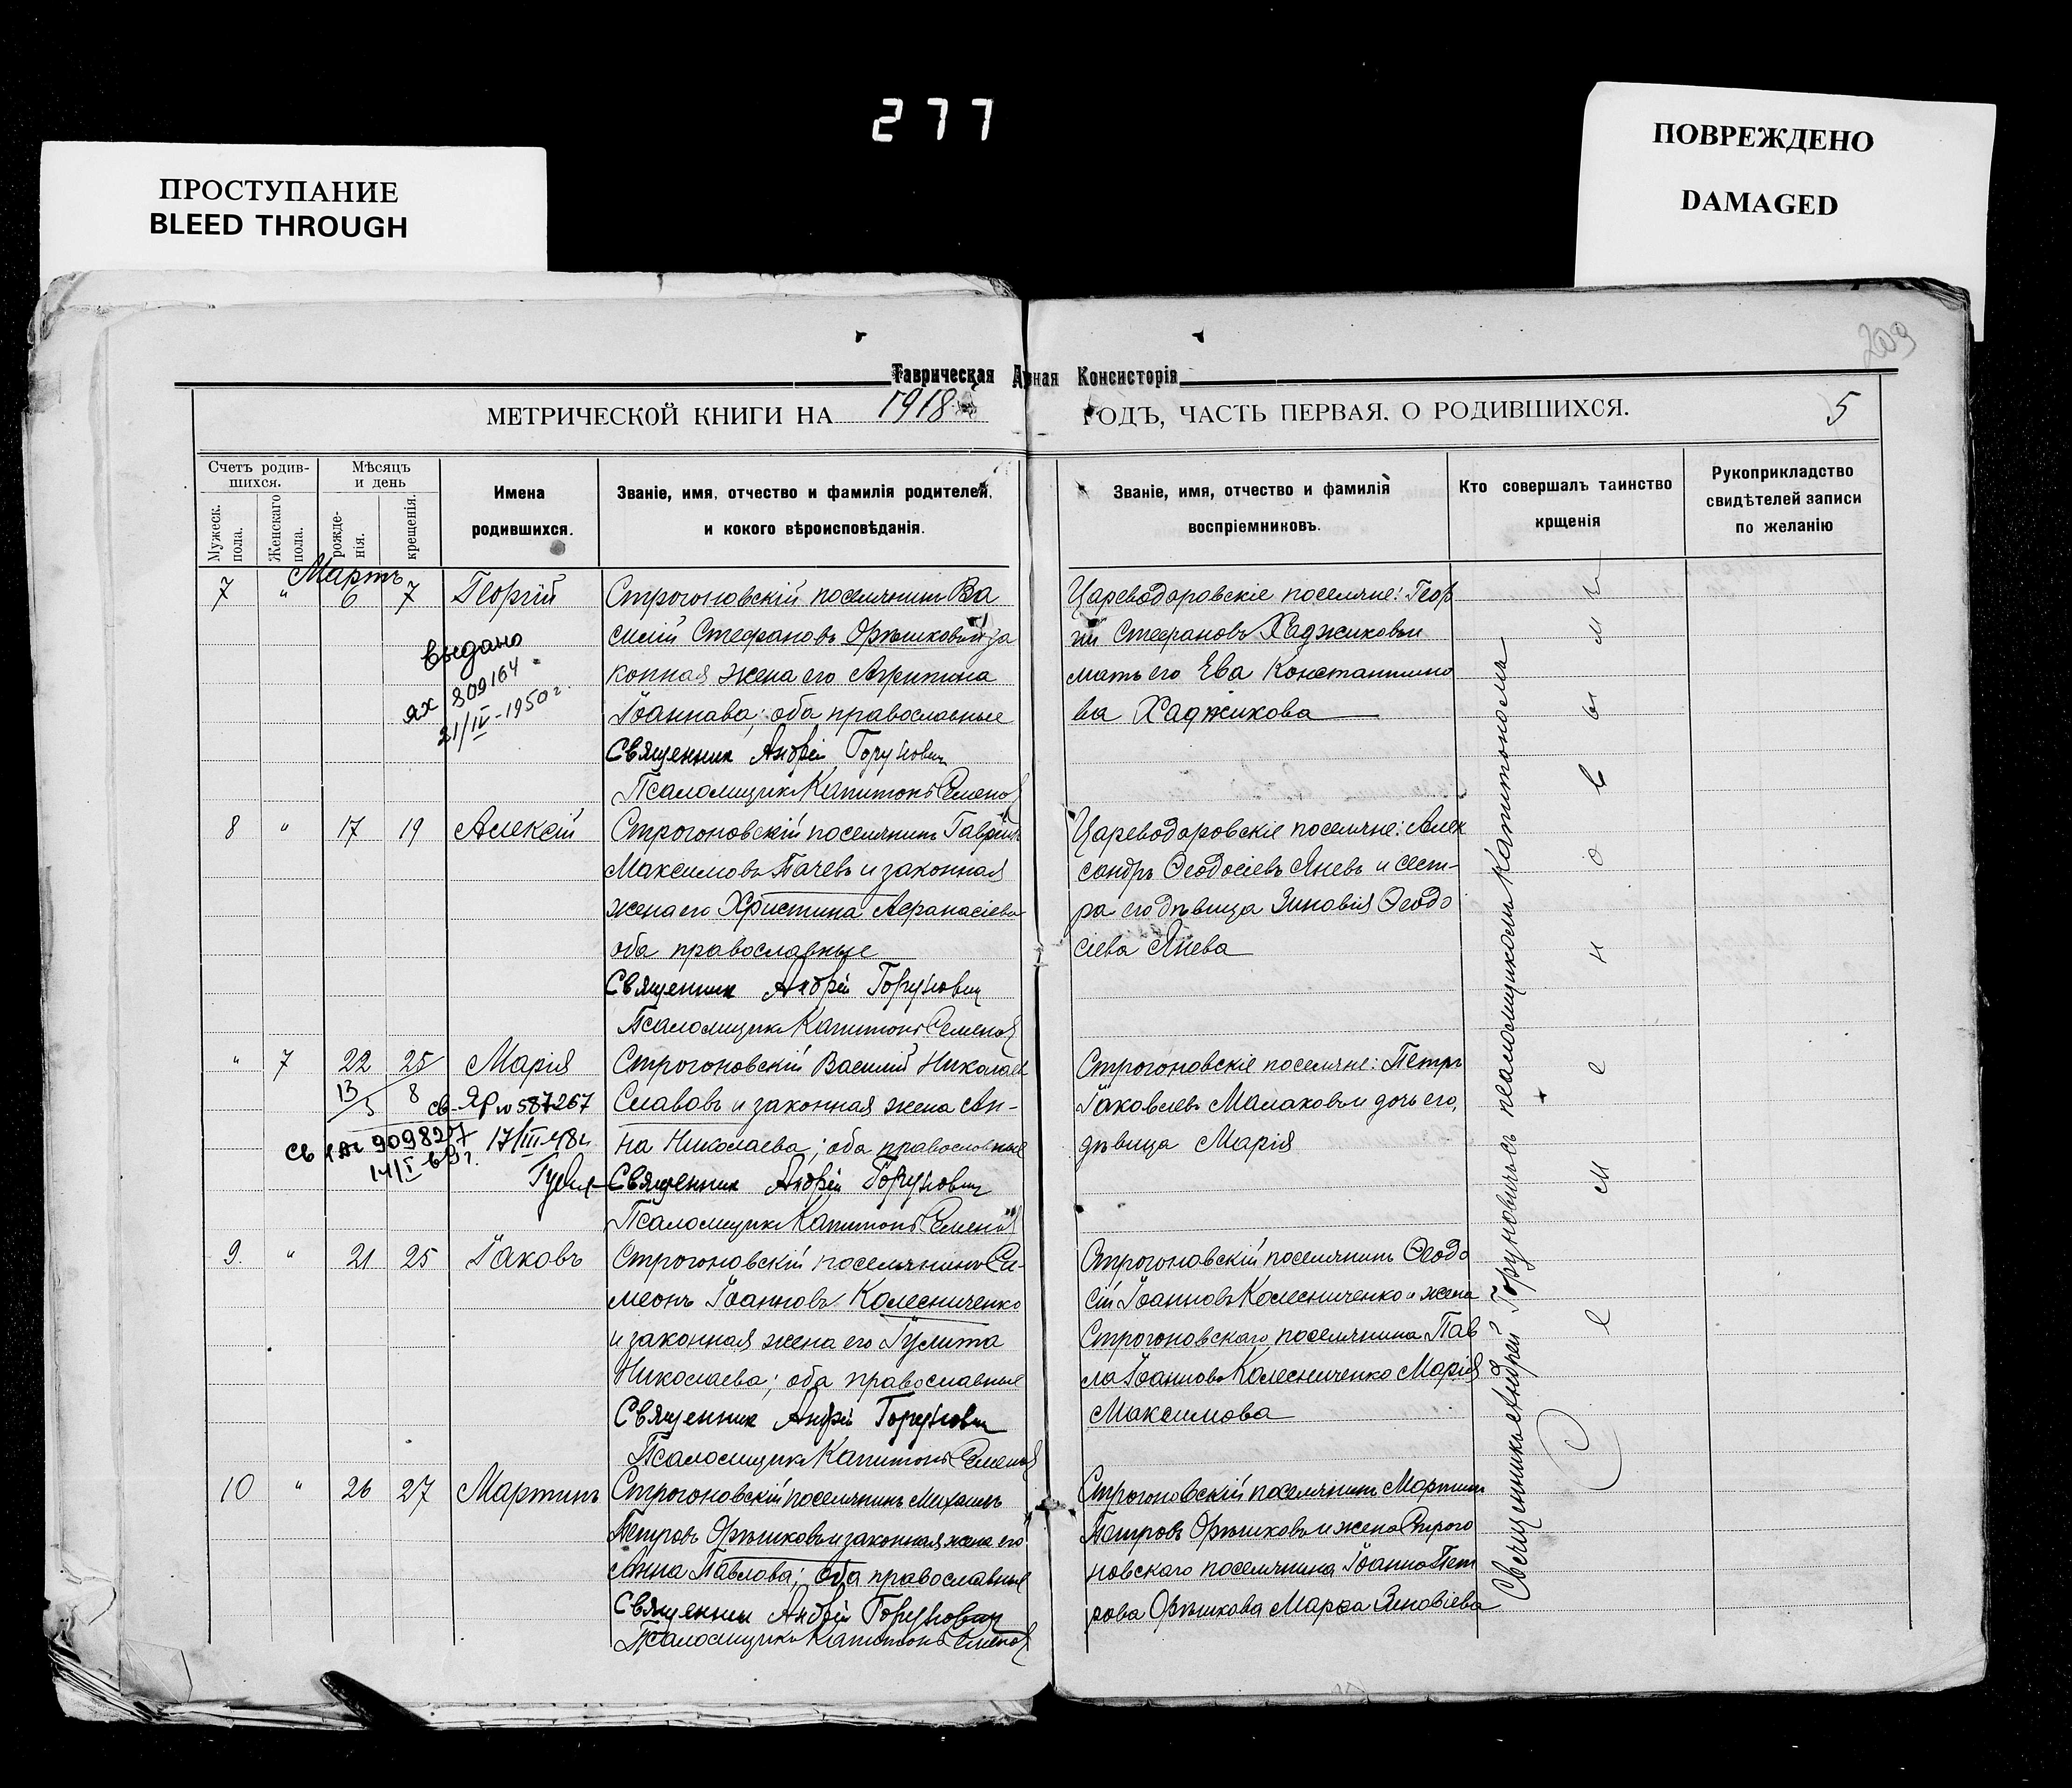 277
ПРОСТУПАНИЕ
BLEED THROUGH
ПОВРЕЖДЕНО
DAMAGED
209
Таврическая
Консисторія
МЕТРИЧЕСКОЙ КНИГИ НА 1918
ГОДЪ, ЧАСТЬ ПЕРВАЯ. О РОДИВШИХСЯ.
5
Счетъ родив-
шихся.
Мужеск.
пола.
Женскаго
пола.
Мѣсяцъ
и день
рожде-
нія.
крещенія.
Имена
родившихся.
Званіе, имя, отчество и фамилія родителей,
и кокого вѣроисповѣданія.
Званіе, имя, отчество и фамилія
воспріемниковъ.
Кто совершалъ таинство
крщенія
Рукоприкладство
свидѣтелей записи
по желанію
Мартъ
7 " 6 7 Георгій
Строгоновскій поселянинъ Ва
силій Стефановъ Орѣшковъ и за
конная жена его
Іоаннава; оба православные
Священник Андрей Горунович
Псаломщикъ Капитонъ Семенов
Выдано
ЯХ 809164
21/IV-1950 г.
Цареводаровскіе поселяне: Геор
гій Стефановъ Хаджиковъ и
мать его Ева Константино
ва Хаджикова
8 " 17 19 Алексій
Строгоновскій поселянинъ Гавріилъ
Максимовъ Тачевъ и законная
жена его Христина Афанасіева
оба православные
Священник Андрей Горунович
Псаломщикъ Капитонъ Семенов
Цареводаровскіе поселяне: Алек
сандръ Ѳеодосіевъ Яневъ и сест-
ра его дѣвица Зиновія Ѳеодо
сіева Янева
" 7 22 25 Марія
13/3 8
Строгоновскій Василій Николаев
Славовъ и законная жена Ан-
на Николаева; оба православные
Священник Андрей Горунович
Псаломщикъ Капитонъ Семенов
св. ЯР № 587267
17/III-48 г.
909827
Строгоновскіе поселяне: Петръ
Іаковлевъ Малаковъ и дочь его,
дѣвица Марія
9. " 21 25 Іаковъ
Строгоновскій поселянинъ Си-
меонъ Іоанновъ Колесниченко
и законная жена его Іулита
Николаева; оба православные
Священник Андрей Горунович
Псаломщикъ Капитонъ Семенов
Строгоновскій поселянинъ Ѳеодо
сій Іоанновъ Колесниченко и жена
Строгоновскаго поселянина Пав
ла Іоаннова Колесниченко Марія
Максимова
10 " 26 27 Мартинъ
Строгоновскій поселянинъ Михаилъ
Петровъ Орѣшковъ и законная жена его
Анна Павлова; оба православные
Священник Андрей Горунович
Псаломщикъ Капитонъ Семенов
Строгоновскій поселянинъ Мартинъ
Петровъ Орѣшковъ и жена Строго
новскаго поселянина Іоанна Пет
рова Орѣшкова Марѳа Зиновіева
Священникъ Андрей Горуновичъ съ псаломщикомъ Капитономъ
Семеновымъ